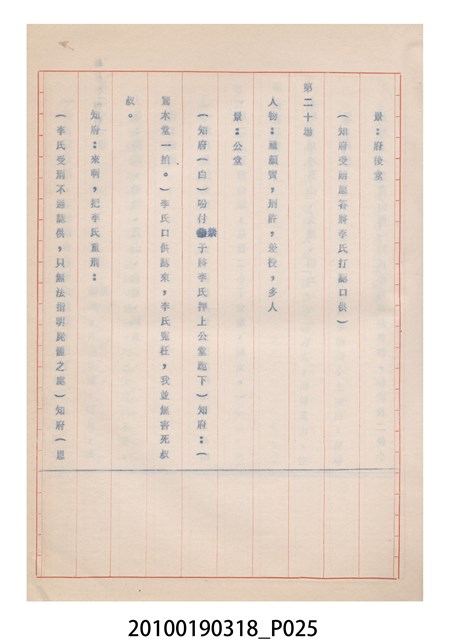 景：府後堂
（知府受賄屈答將李氏打認口供）
第二十場
人物：趙、刑許，差役，多人
景：公堂
（知府（白）吩付禁子將李氏押上公堂跪下）知府：（
驚木堂一拍。）李氏口供認來，李氏冤枉，我並無害死叔
叔。
知府：來啊，把李氏重刑：
（李氏受刑不過認供，只無法指明屍體之處）知府（思
20100190318_P025